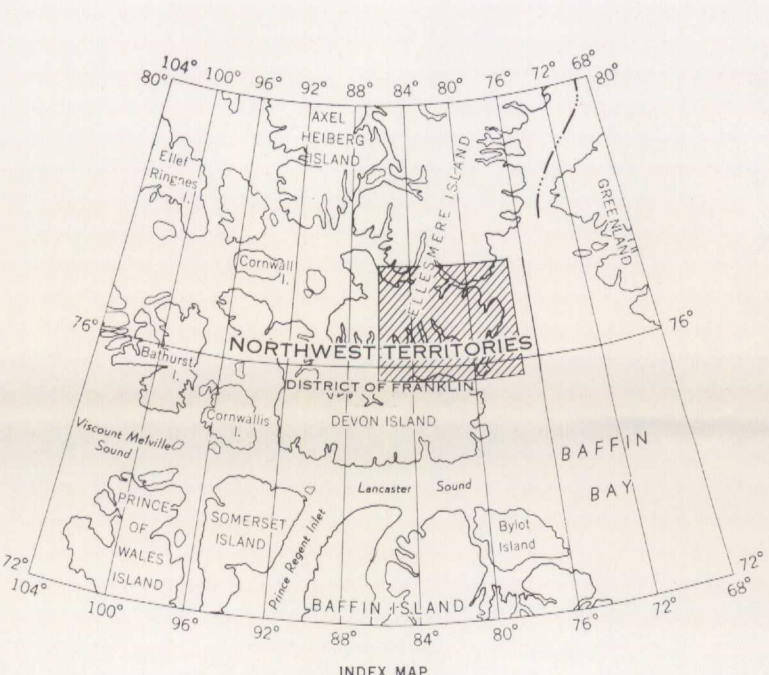 104° 100° 96° 92° 88° 84° 80° 76° 72° 68°
80° 80°
AXEL
HEIBERG
ISLAND
Ellef
Ringnes
I.
ELLESMERE ISLAND
GREENLAND
Cornwall
I.
76° 76°
NORTHWEST TERRITORIES
Bathurst
I.
DISTRICT OF FRANKLIN
DEVON ISLAND
Cornwallis
I.
Viscount Melville
Sound
BAFFIN
BAY
Lancaster Sound
PRINCE
OF
WALES
ISLAND
SOMERSET
ISLAND
Prince Regent Inlet
Bylot
Island
BAFFIN ISLAND
72° 72°
104° 100° 96° 92° 88° 84° 80° 76° 72° 68°
INDEX MAP